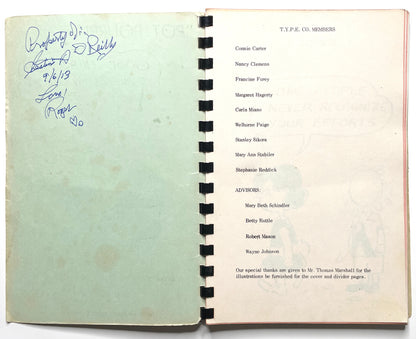 Property of:
D Reilly
9/6/13
Love!
T.Y.P.E. CO. MEMBERS
Connie Carter
Nancy Clemens
Francine Furey
Margaret Hagerty
Carla Miano
Welborne Paige
Stanley Sikora
Mary Ann Stabiler
Stephanie Reddick
ADVISORS:
Mary Beth Schindler
Betty Ruttle
Robert Mason
Wayne Johnson
Our special thanks are given to Mr. Thomas Marshall for the
illustrations he furnished for the cover and divider pages.